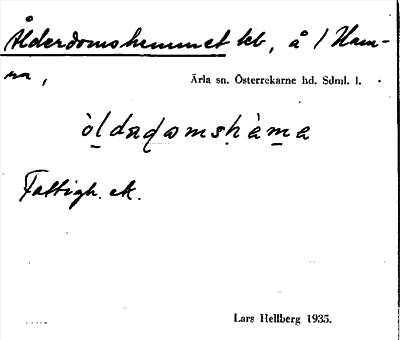 Ålderdomshemmet kb, å 1 Ham-
ra,
Ärla sn. Österrekarne hd. Sdml. l.
Fattigh. ek.
Lars Hellberg 1935.